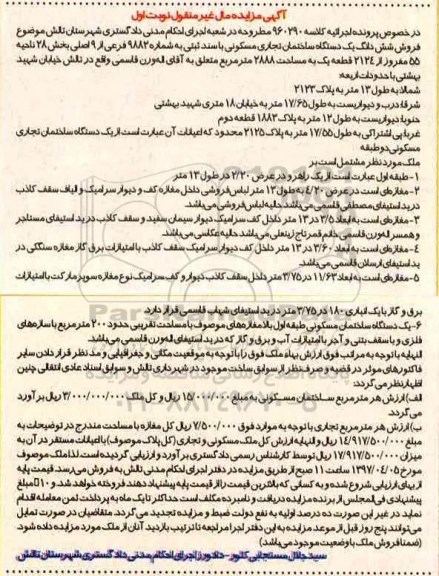 آگهی مزایده مال غیر منقول نوبت اول
در خصوص پرونده اجرائیه کلاسه 960290 مطروحه در شعبه اجرای احکام مدنی دادگستری شهرستان تالش موضوع
فروش شش دانگ یک دستگاه ساختمان تجاری مسکونی با سند ثبتی به شماره 9882 فرعی از 9 اصلی بخش 28 ناحیه
55 مفروز از 2124 قطعه یک به مساحت 2888 متر مربع متعلق به آقای اله ورن قاسمی واقع در تالش خیابان شهید
بهشتی با حدودات اربعه:
شمالا به طول 13 متر به پلاک 2123
شرقا درب و دیواریست به طول 17/65 متر به خیابان 18 متری شهید بهشتی
جنوبا: دیواریست به طول 12 متر به پلاک 1883 قطعه دوم
غربا پی اشتراکی به طول 17/55 متر به پلاک 2125 محدود که اعیانات آن عبارت است از یک دستگاه ساختمان تجاری
مسکونی دو طبقه
ملک مورد نظر مشتمل است بر
1- طبقه اول عبارت است از یک راهرو در عرض 2/20 در طول 13 متر
2- مغازه ای است در عرض 4/20 به طول 13 متر لباس فروشی داخل مغازه کف و دیوار سرامیک و الیاف سقف کاذب
در ید استیفای مصطفی قاسمی می باشد. حالیه لباس فروشی می باشد.
3- مغازه ای است به ابعاد 3/5 در 13 متر داخل کف سرامیک دیوار سیمان سفید و سقف کاذب در ید استیفای مستاجر
و همسر اله ورن قاسمی خانم قمرتاج زینعلی می باشد. حالیه عکاسی می باشد.
4- مغازه ای است به ابعاد 3/60 در 13 متر داخل کف سرامیک سقف کاذب با امتیازات برق گاز مغازه سنگکی در
ید استیفای ارسلان قاسمی می باشد.
5- مغازه ای است به ابعاد 11/63 در 3/75 متر داخل سقف کاذب دیوار و کف سرامیک نوع مغازه سوپرمارکت با امتیازات
برق و گاز با یک انباری 180 در 3/75 متر در ید استیفای شهاب قاسمی قرار دارد.
6- یک دستگاه ساختمان مسکونی طبقه اول بالا مغازه های موصوف با مساحت تقریبی حدود 200 متر مربع با سازه های
فلزی و با سقف بتنی و آجر با امتیازات آب و برق و گاز که در ید استیفای اله ورن قاسمی می باشد.
النهایه با توجه به مراتب فوق ارزش بهاء ملک فوق را با توجه به موقعیت مکانی و جغرافیایی و مد نظر قرار دادن سایر
فاکتورهای موثر در قضیه و صرف نظر از سوابق ساخت موجود در شهرداری تالش و سوابق اسناد عادی انتقالی چنین
اظهار نظر می گردد:
الف) ارزش هر متر مربع ساختمان مسکونی به مبلغ 15/000/000 ریال و کل ملک 3/000/000/000 ریال برآورد
می گردد.
ب) ارزش هر متر مربع تجاری با توجه به موارد فوق 7/500/000 ریال کل مغازه با مساحت مندرج در توضیحات به
مبلغ 14/917/500/000 ریال و النهایه ارزش کل ملک مسکونی و تجاری (کل پلاک موصوف) با اعیانات مستقر در آن به
میزان 17/917/500/000 ریال توسط کارشناس رسمی دادگستری برآورد و ارزیابی گردیده است. لذا ملک موصوف
مورخ 1397/04/05 ساعت 11 صبح از طریق مزایده در دفتر اجرای احکام مدنی تالش به فروش می رسد. قیمت پایه
از بهای ارزیابی شروع شده و به کسانی که بالاترین قیمت را از قیمت پایه پیشنهاد دهند فروخته خواهد شد. و 10٪ مبلغ
پیشنهادی فی المجلس از برنده مزایده دریافت و نامبرده مکلف است حداکثر تا یک ماه به پرداخت ثمن معامله اقدام
نماید در غیر این صورت ده درصد اولیه به نفع دولت ضبط و مزایده تجدید می گردد. متقاضیان در صورت تمایل
می توانند پنج روز قبل از موعد مزایده به این دفتر اجرا مراجعه تا ترتیب بازدید آنان از ملک مورد مزایده داده شود.
(ضمنا فروش ملک با وضعیت موجود می باشد)
سید جلال مستجابی کلور - دادورز اجرای احکام مدنی دادگستری شهرستان تالش